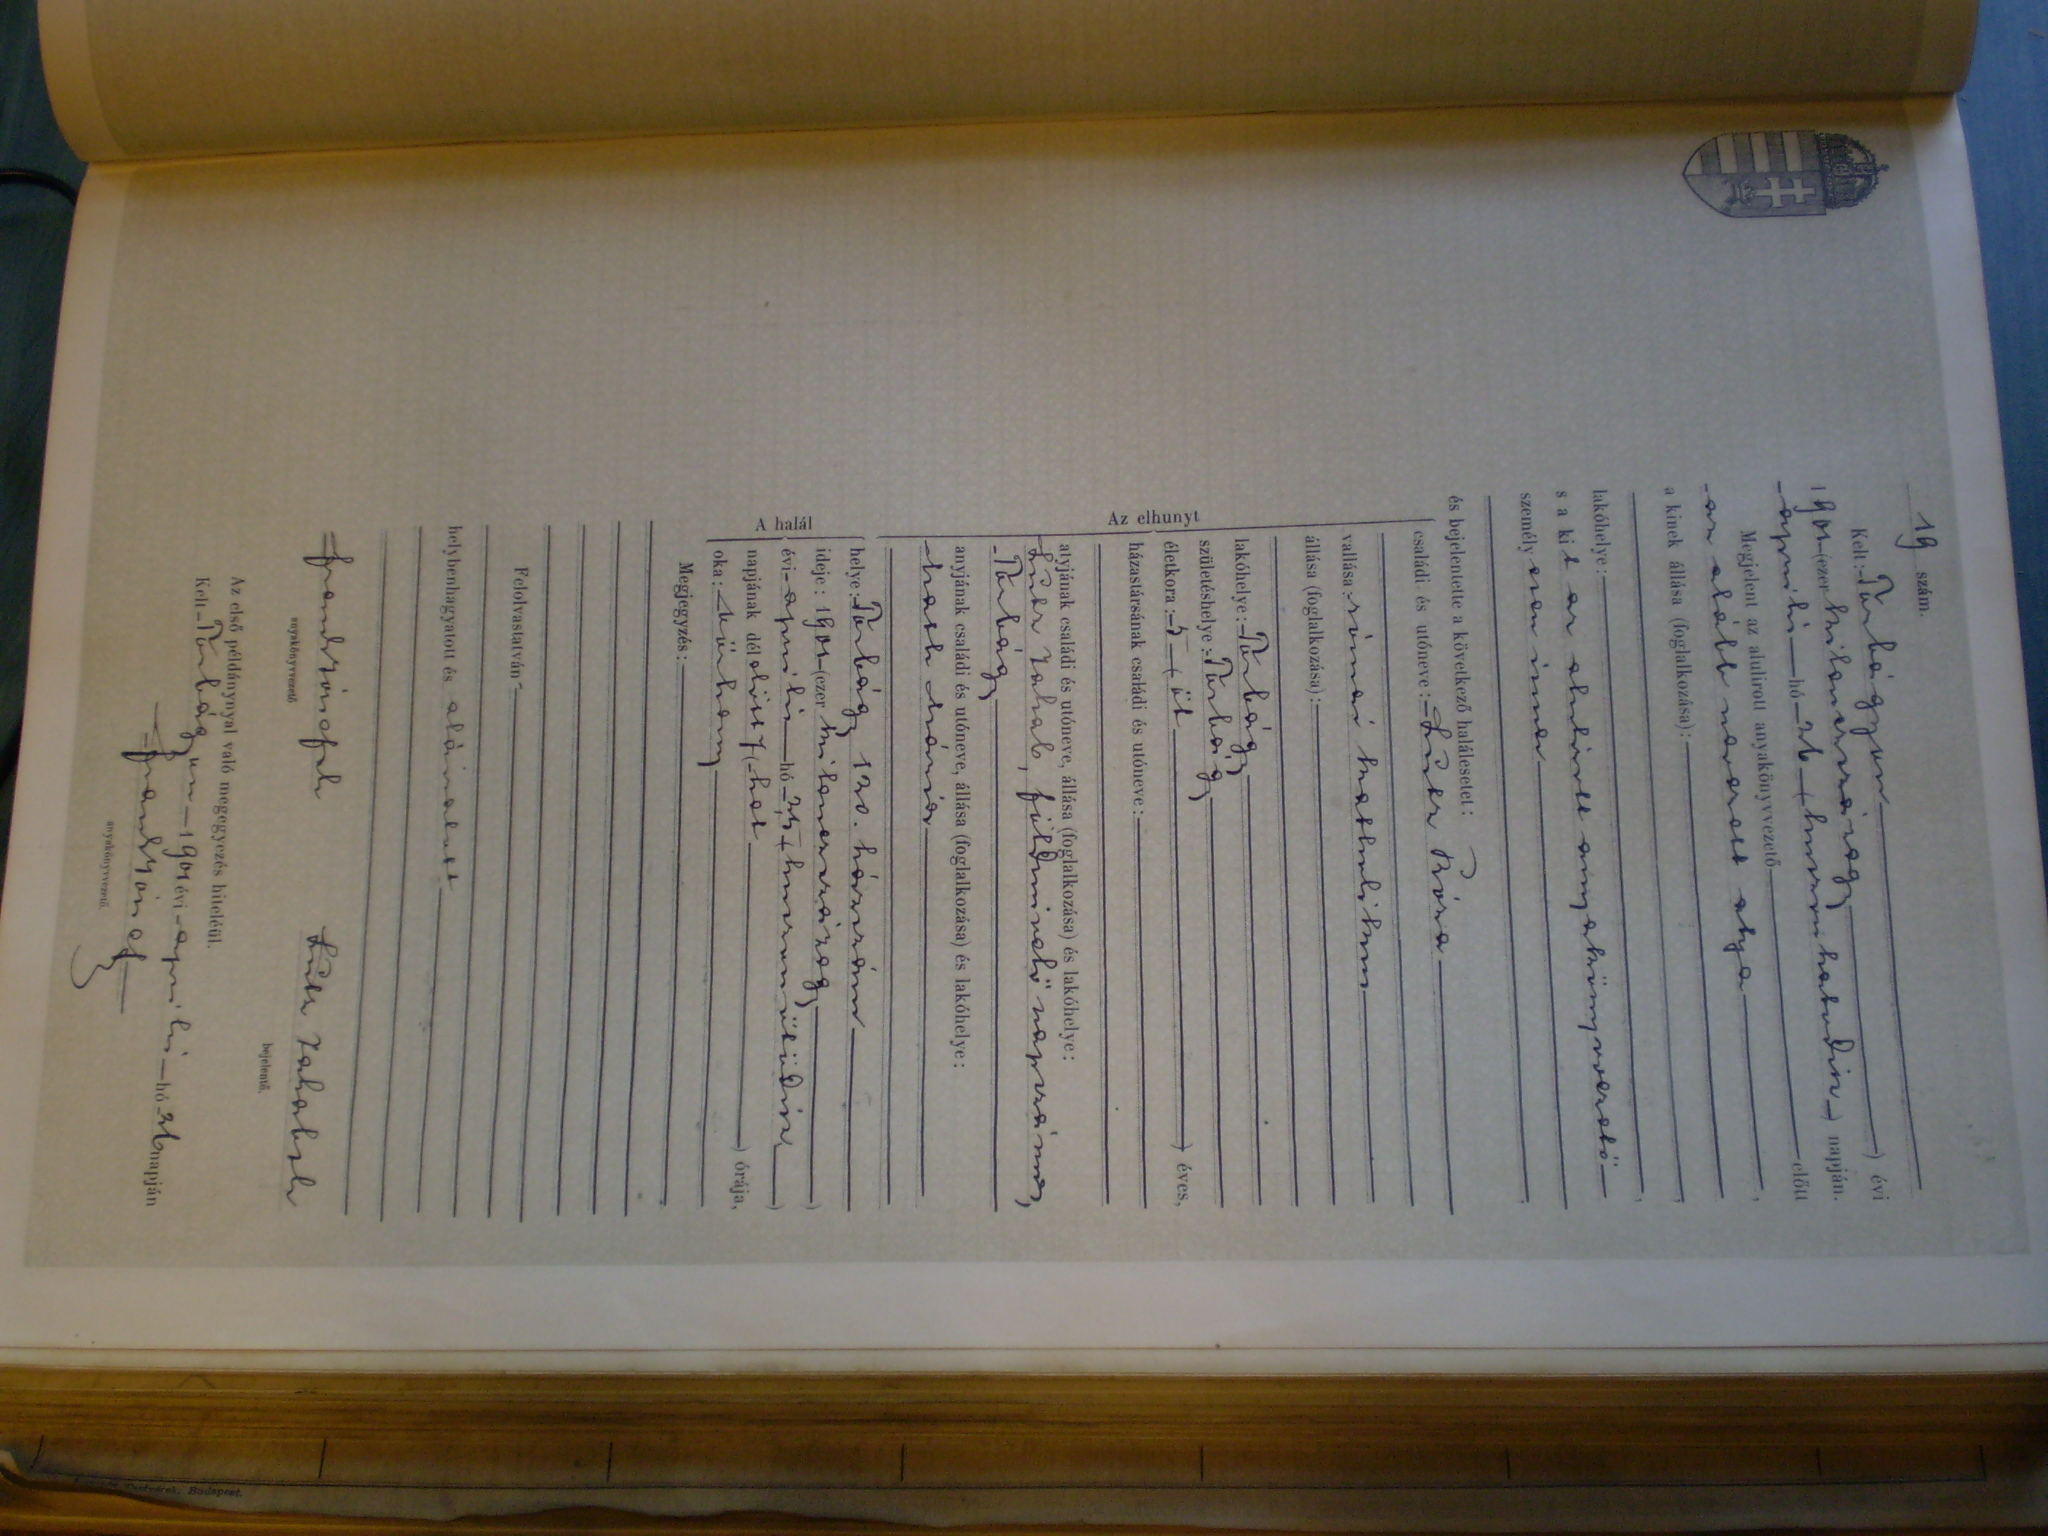 19 szám.
Kelt: Törbágyon évi
1901 (ezerkilencszázegy) napján.
április hó 26 (huszonhatodik)
Megjelent az alulirott anyakönyvvezető előtt
az alább nevezett atya,
a kinek állása (foglalkozása):
lakóhelye:
s a kit az alulirott anyakönyvvezető
személyesen ismer,
és bejelentette a következő halálesetet:
Az elhunyt
családi és utóneve: Róza
vallása: római katholikus
állása (foglalkozása):
lakóhelye: Törbágy
születéshelye: Törbágy
életkora: 5 (öt) éves,
házastársának családi és utóneve:
atyjának családi és utóneve, állása (foglalkozása) és lakóhelye:
Jakab, földmivelő napszámos,
Törbágy
anyjának családi és utóneve, állása (foglalkozása) és lakóhelye:
Mária
A halál
helye: Törbágy 120. házszám
ideje: 1901 (ezerkilencszázegy)
évi április hó 25 (huszonötödik)
napjának dél előtt 7 (hét) órája,
oka:
Megjegyzés:
Felolvastatván,
helybenhagyatott és aláiratott
anyakönyvvezető
bejelentő.
Az első példánynyal való megegyezés hiteléül.
Kelt Törbágyon 1901 évi április hó 26 napján
anyakönyvvezető.
Budapest.